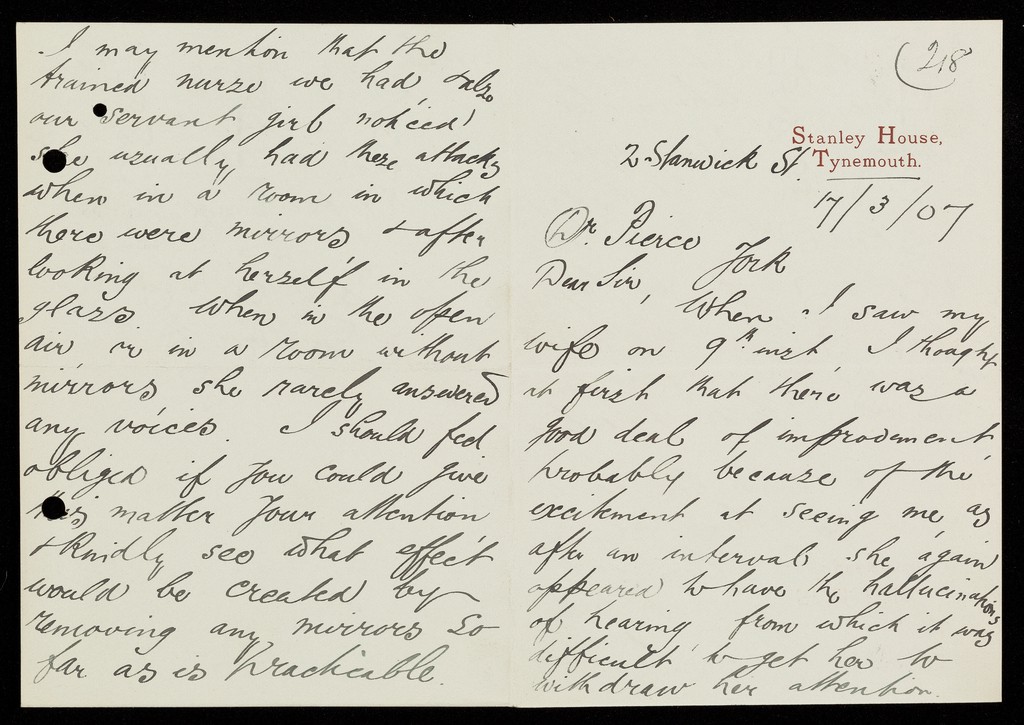 (218
Stanley House,
2 Stanwick St. Tynemouth.
17/3/07
Dr. Pierce
York
Dear Sir,
When I saw my
wife on 9th inst I thought
at first that there was a
good deal of improvement
probably because of the
excitement at seeing me as
after an interval she again
appeared to have the hallucinations
of hearing from which it was
difficult to get her to
withdraw her attention.
I may mention that the
trained nurse we had & also
our servant girl noticed
she usually had these attacks
when in a room in which
there were mirrors & after
looking at herself in the
glass when in the open
air or in a room without
mirrors she rarely answered
any voices. I should feel
obliged if you could give
this matter your attention
& kindly see what effect
would be created by
removing any mirrors so
far as is practicable.